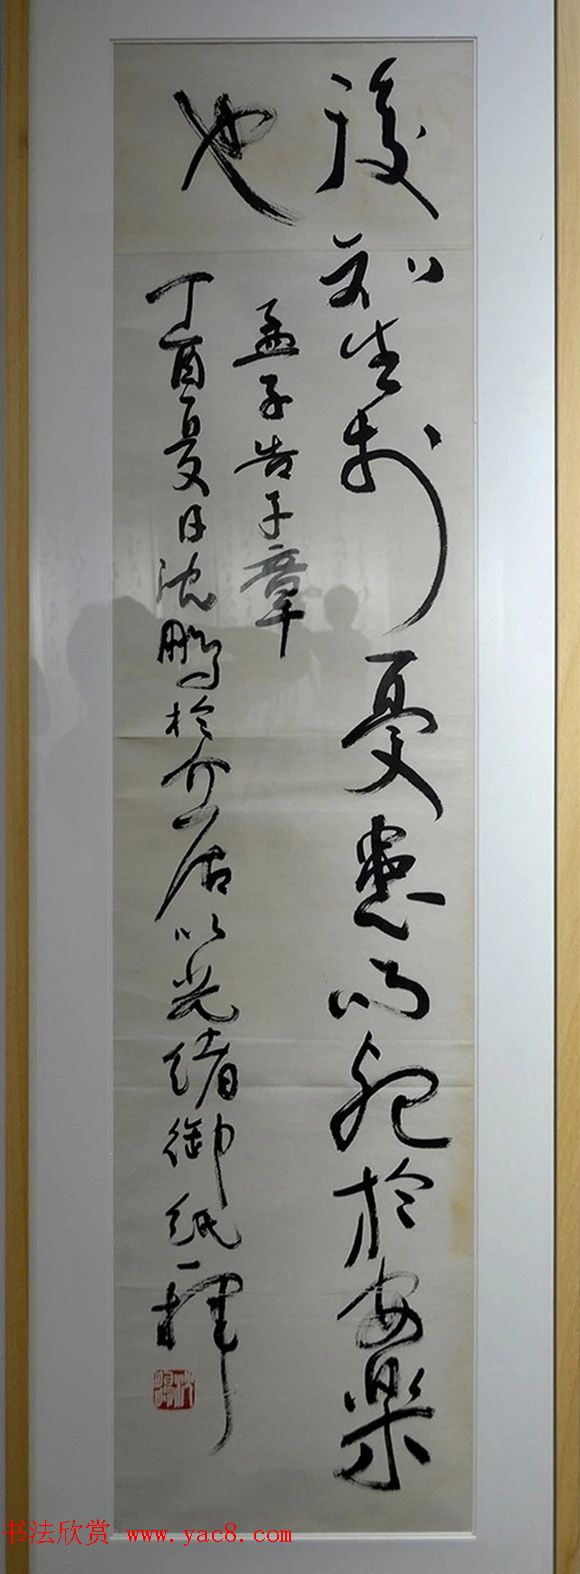 後知生於憂患而死於安樂
也
孟子告子章
丁酉夏日沈鵬於介居以光緒御紙
书法欣赏 www.yac8.com